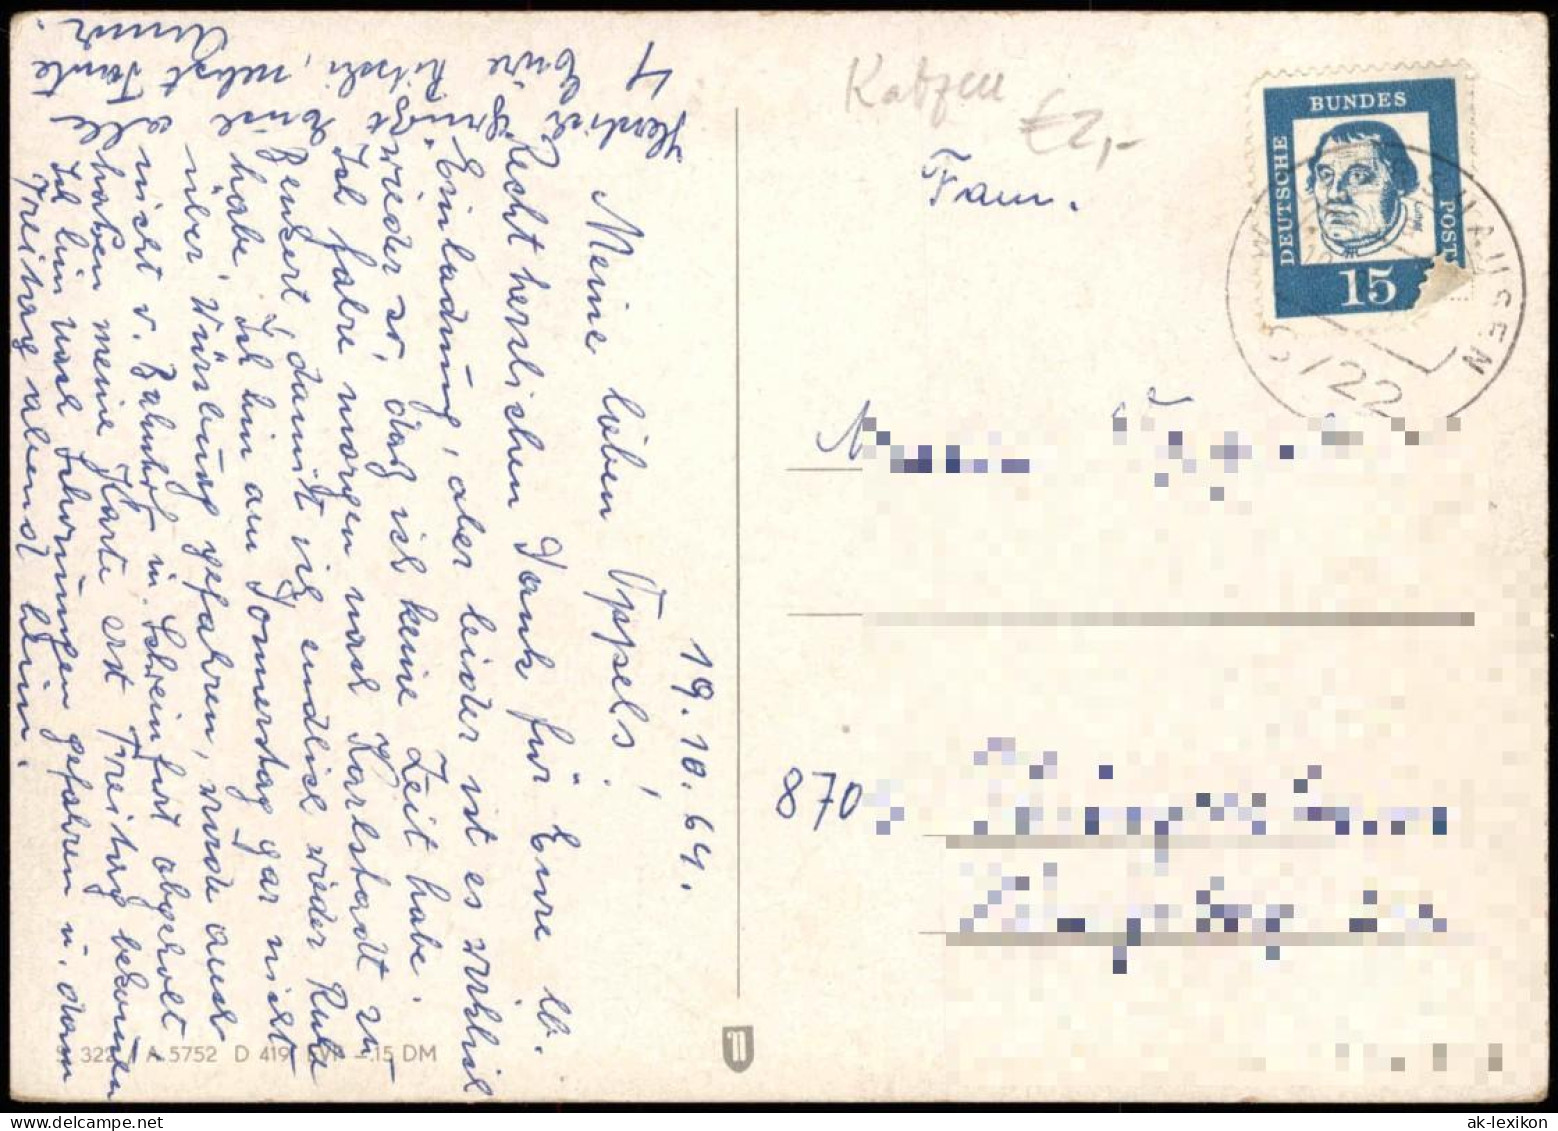 19. 10. 64.
Meine lieben Oppels!
Recht herzlichen Dank für Eure lb.
Einladung, aber leider ist es wirklich
wieder so, daß ich keine Zeit habe.
Ich fahre morgen nach Karlstadt zu
Benkert, damit ich endlich wieder Ruhe
habe. Ich bin am Donnerstag gar nicht
über Würzburg gefahren, wurde auch
nicht v. Bahnhof in Schweinfurt abgeholt
haben meine Karte erst Freitag bekommen
Ich bin nach Schonungen gefahren u. dann
Freitag abend heim.
Herzlich grüßt Euch alle
4 Eure Betti, nebst Tante
Katzen
€2,-
Fam.
870
DEUTSCHE BUNDESPOST
15
HAUSEN
8722
322 / A 5752 D 419 EVP -.15 DM
ak-lexikon